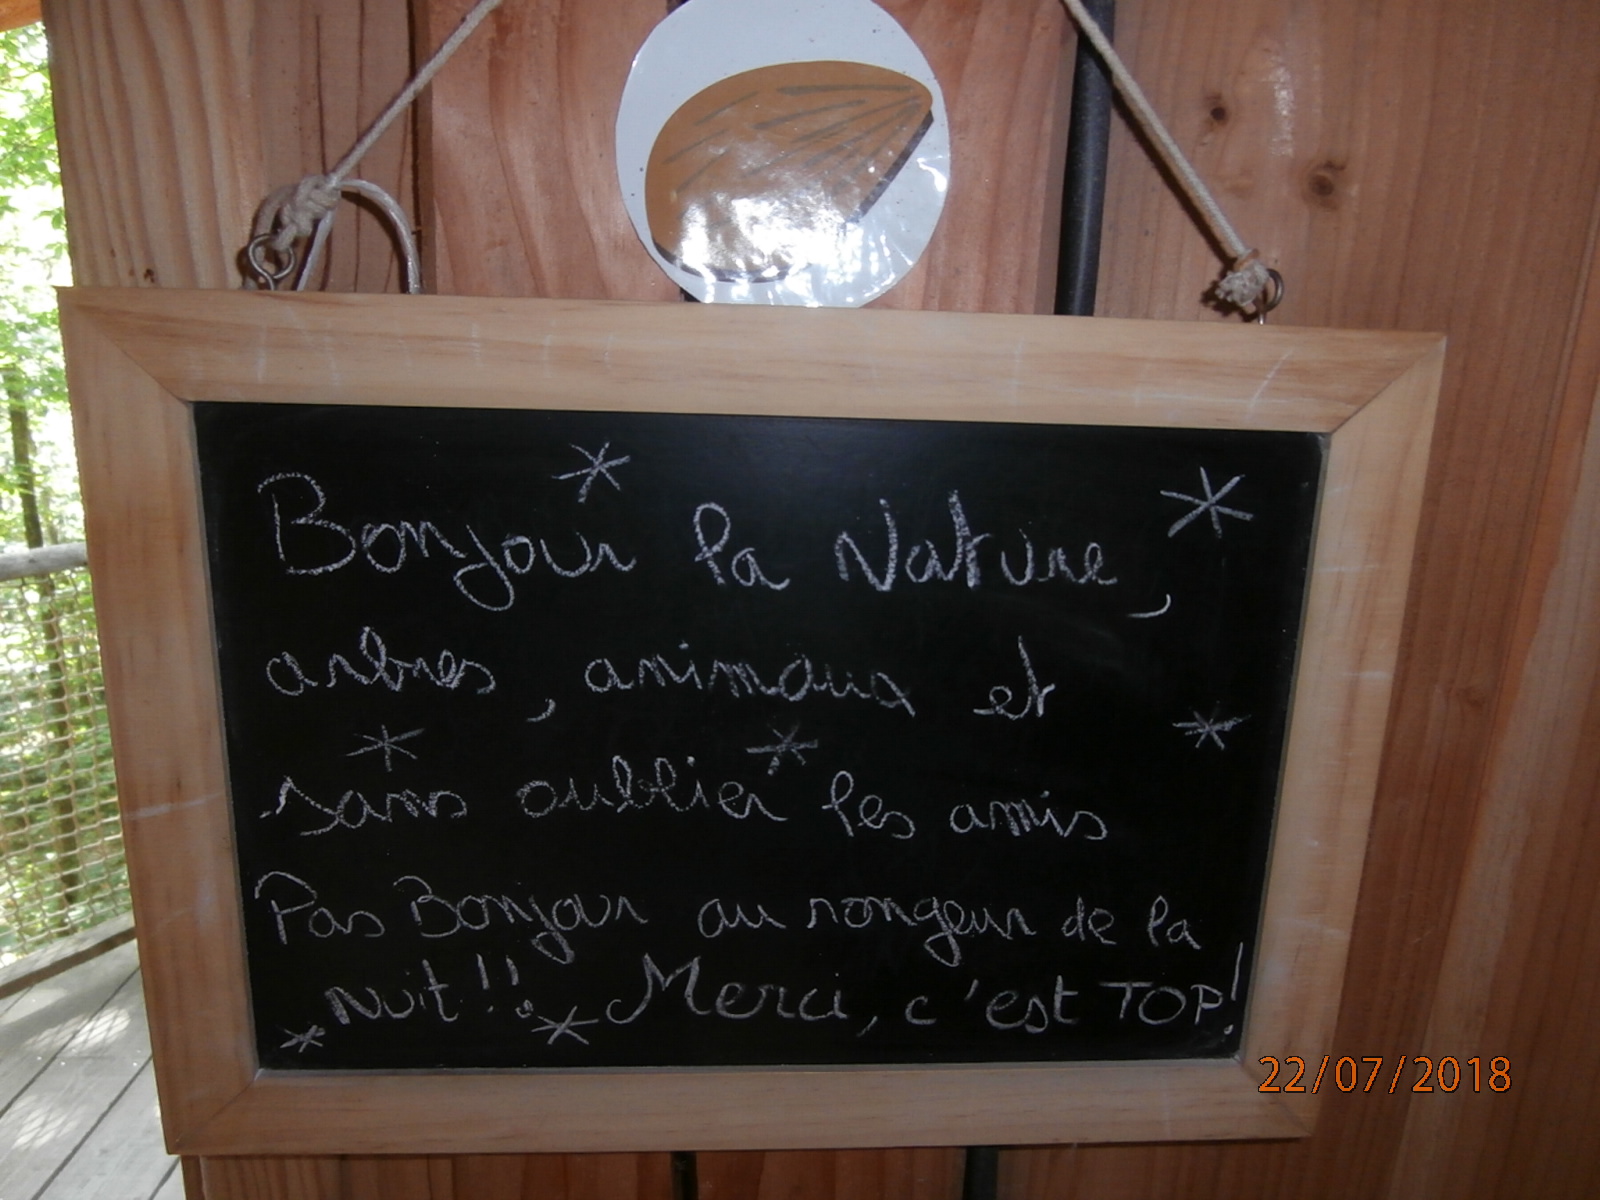 Bonjour la Nature,
arbres, animaux et
sans oublier les amis
Pas Bonjour au rongeur de la
Nuit!! Merci, c'est TOP!
22/07/2018